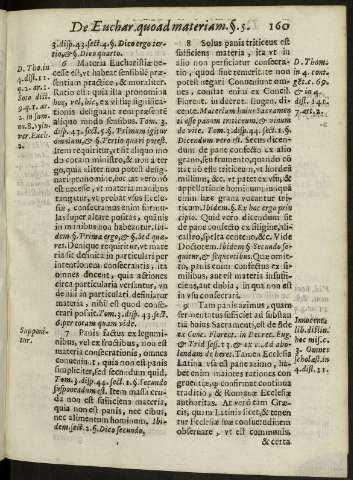 De Euchar. quoad materiam. §. 5. 160
3. disp. 43. sect. 4. §. Dico ergo ter-
tio, & §. Dico quarto.
6 Materia Eucharistiæ ne-
cesse est, vt habeat sensibilē præ-
sentiam practicè, & moraliter.
Ratio est: quia illa pronomina
hoc, vel, hic, ex vi suę significatio-
nis designant rem præsentem
modo sensibus notam. Tom. 3.
disp. 43. sect. 5. §. Primum igitur
omnium, & §. Tertio quæri potest.
Item requiritur, vt sit aliquo mo-
do coram ministro, & non à ter-
go, quia aliter non poterit desig-
nari pronomine, hoc: at verò nō
est necesse, vt materia manibus
tangatur, vt probat vsus Eccle-
siæ, consecramus enim formu-
las super altare positas, quāuis
in manibus non habeantur. Ibi-
dem. §. Prima ergo, & §. Sed quæ-
res. Denique requiritur, vt mate-
ria sit definita in particulari per
intentionem consecrantis, ita
omnes docent, quia actiones
circa particularia versantur, vn-
de nisi in particulari definiatur
materia, nihil est quod conse-
crari possit. Tom. 3. disp. 43. sect.
6. per totam quam vide.
7 Panis factus ex legumi-
nibus, vel ex fructibus, non est
materia consecrationis, omnes
conueniunt, quia non est panis
simpliciter, sed secundum quid.
Tom. 3. disp. 44. sect. 1. §. Secundo
supponendum est. Item massa cru-
da non est sufficiens materia,
quia non est panis, nec cibus,
nec alimentum hominum. Ibi-
dem, sect. 2. §. Dico secundo,
D. Tho. in
4. dist. 11.
q. 2. ar. 1.
Soto dist.
9. q. 1. ar.
2.
Supponi-
tur.
8 Solus panis triticeus est
sufficiens materia, ita vt in
alio non perficiatur consecra-
tio, quod sine temeritate non
potest negari. Conueniunt om-
nes, & constat enim ex Conci.
Florent. in decret. Eugen. di-
cente, Materiam huius Sacramen-
ti esse panem triticeum, & vinum
de vite. Tom. 3. disp. 44. sect. 1. §.
Dicendum vero est. Secus dicen-
dum de pane confecto ex alio
grano, seu frumento, quando cō-
stat nō esse triticeū, vt hordeū,
milium, &c. vt patet ex vsu, &
appellatione hominum: nunquā
enim hæc grana vocantur tri-
ticeum. Ibidem. §. Ex hoc ergo prin-
cipio. Quid vero dicendum sit
de pane confecto ex siligine, ali-
castro, spelta centeno, &c. Vide
Doctorem. Ibidem §. Secundo se-
quitur, & sequentibus. Quæ omit-
to, quia cum confectus ex si-
milibus, aut est materia insuffi-
ciens, aut dubia, in qua non est
in vsu consecrari.
9 Tam panis azimus, quam
fermentatus sufficiet ad substan-
tiā huius Sacramenti, est de fide
ex Conc. Florent. in Decret. Eug.
& Trid. sess. 13. & ex c. ad abo-
lendam de heret. Tamen Ecclesia
Latina vsa est pane azimo, ha-
bet enim maiores rationes con-
gruentiæ, & confirmat continua
traditio, & Romanæ Ecclesiæ
authoritas. At vero tam Græ-
cis, quam Latinis licet, & tenen-
tur Ecclesiæ suæ consuetudinem
obseruare, vt est communis,
& certa
D. Thom.
in 4. con-
7. art. 2.
Innocent.
3. Omnes
scholast. in
4. dist. 11.